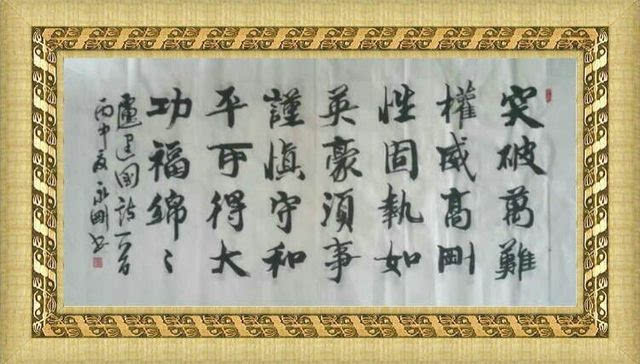 突破萬難
權威高剛
性固執如
英豪須事
謹慎守和
平可得大
功福綿〻
盧建國詩一首
丙申夏永剛书